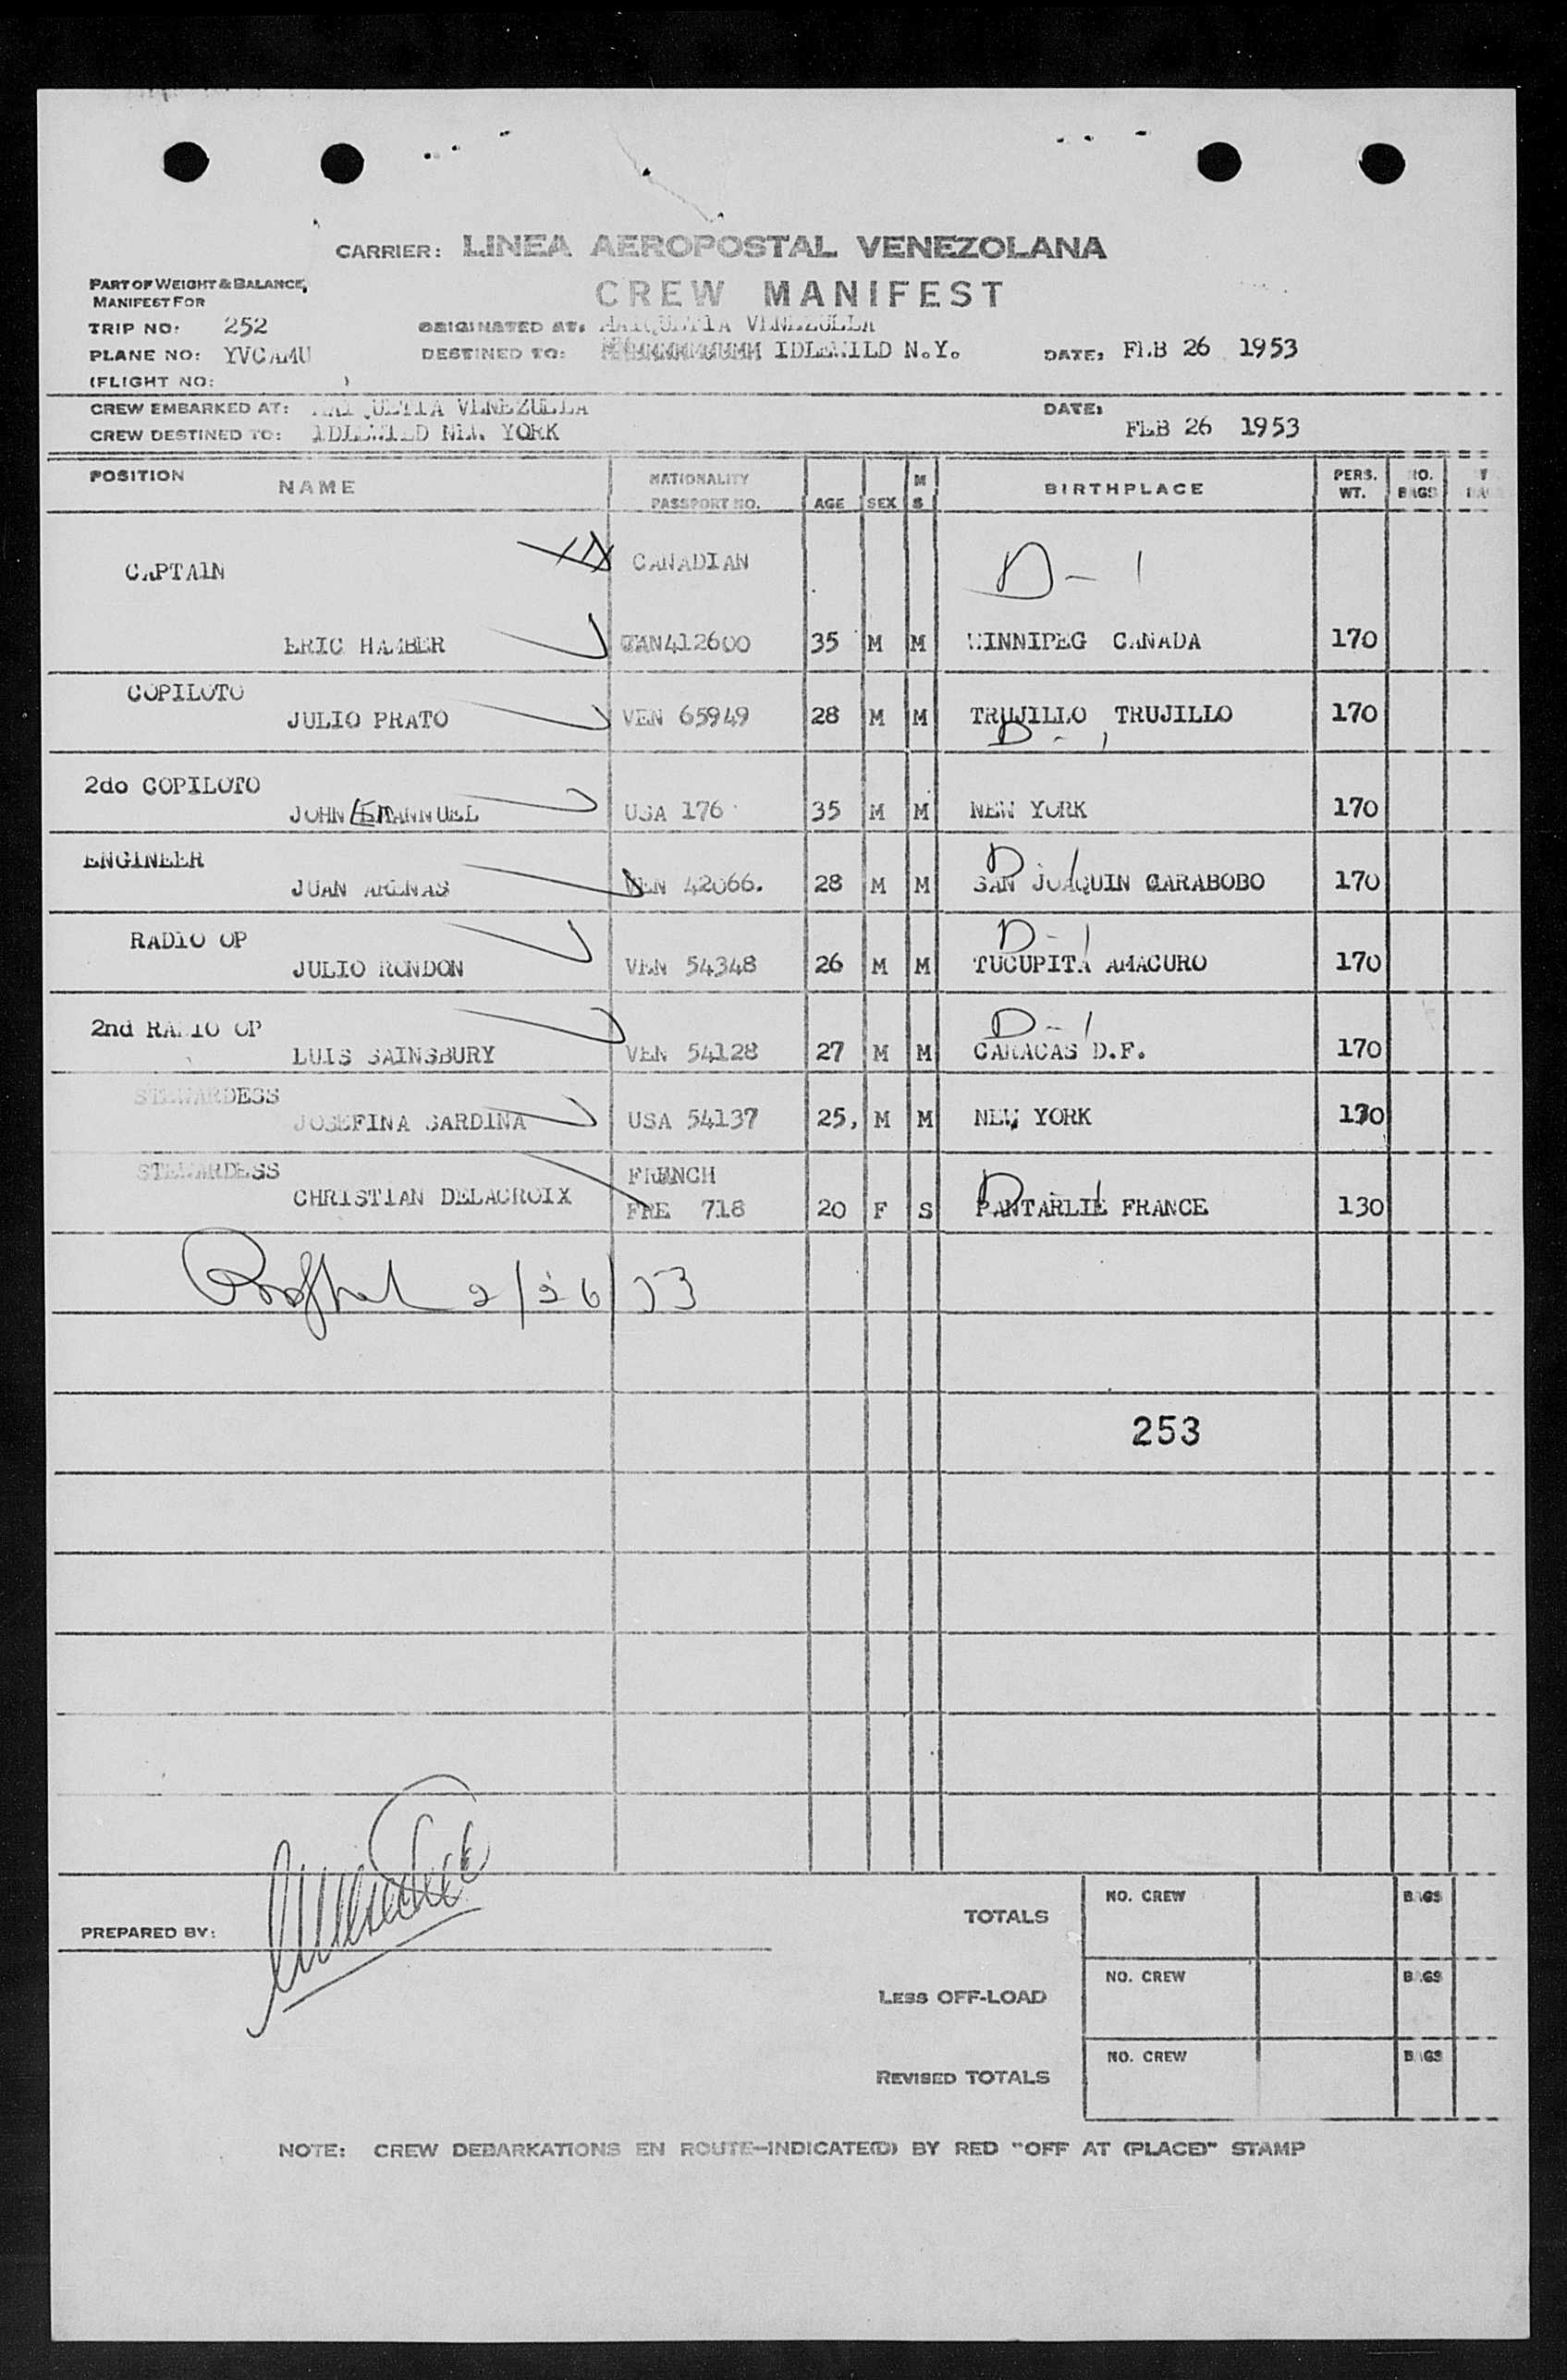 CARRIER: LINEA AEROPOSTAL VENEZOLANA
PART OF WEIGHT & BALANCE,
MANIFEST FOR
CREW MANIFEST
TRIP NO: 252 ORIGINATED AT: MAIQUETIA VENEZUELA
PLANE NO: YVCAMU DESTINED TO: IDLEWILD N.Y. DATE: FEB 26 1953
(FLIGHT NO: )
CREW EMBARKED AT: MAIQUETIA VENEZUELA DATE:
CREW DESTINED TO: IDLEWILD NEW YORK FEB 26 1953
POSITION NAME NATIONALITY PASSPORT NO. AGE SEX M S BIRTHPLACE PERS. WT. NO. BAGS
CAPTAIN CANADIAN D-1
ERIC HAMBER 412600 35 M M WINNIPEG CANADA 170
COPILOTO
JULIO PRATO VEN 65949 28 M M TRUJILLO , TRUJILLO 170
D-1
2do COPILOTO
JOHN EMANNUEL USA 176 35 M M NEW YORK 170
ENGINEER D-1
JUAN ARENAS VEN 42066. 28 M M SAN JOAQUIN CARABOBO 170
RADIO OP D-1
JULIO RONDON VEN 54348 26 M M TUCUPITA AMACURO 170
2nd RADIO OP D-1
LUIS SAINSBURY VEN 54128 27 M M CARACAS D.F. 170
STEWARDESS
JOSEFINA SARDINA USA 54137 25, M M NEW YORK 130
STEWARDESS FRENCH D-1
CHRISTIAN DELACROIX FRE 718 20 F S PANTARLIE FRANCE 130
2/26/53
253
PREPARED BY:
TOTALS NO. CREW BAGS
LESS OFF-LOAD NO. CREW BAGS
REVISED TOTALS NO. CREW BAGS
NOTE: CREW DEBARKATIONS EN ROUTE—INDICATE(D) BY RED "OFF AT (PLACE)" STAMP